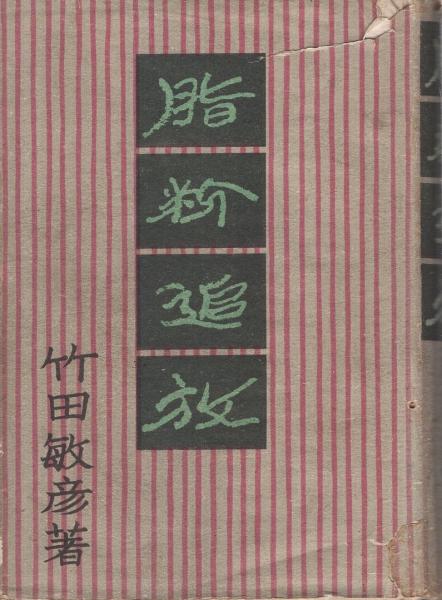 脂粉追放
竹田敏彦著